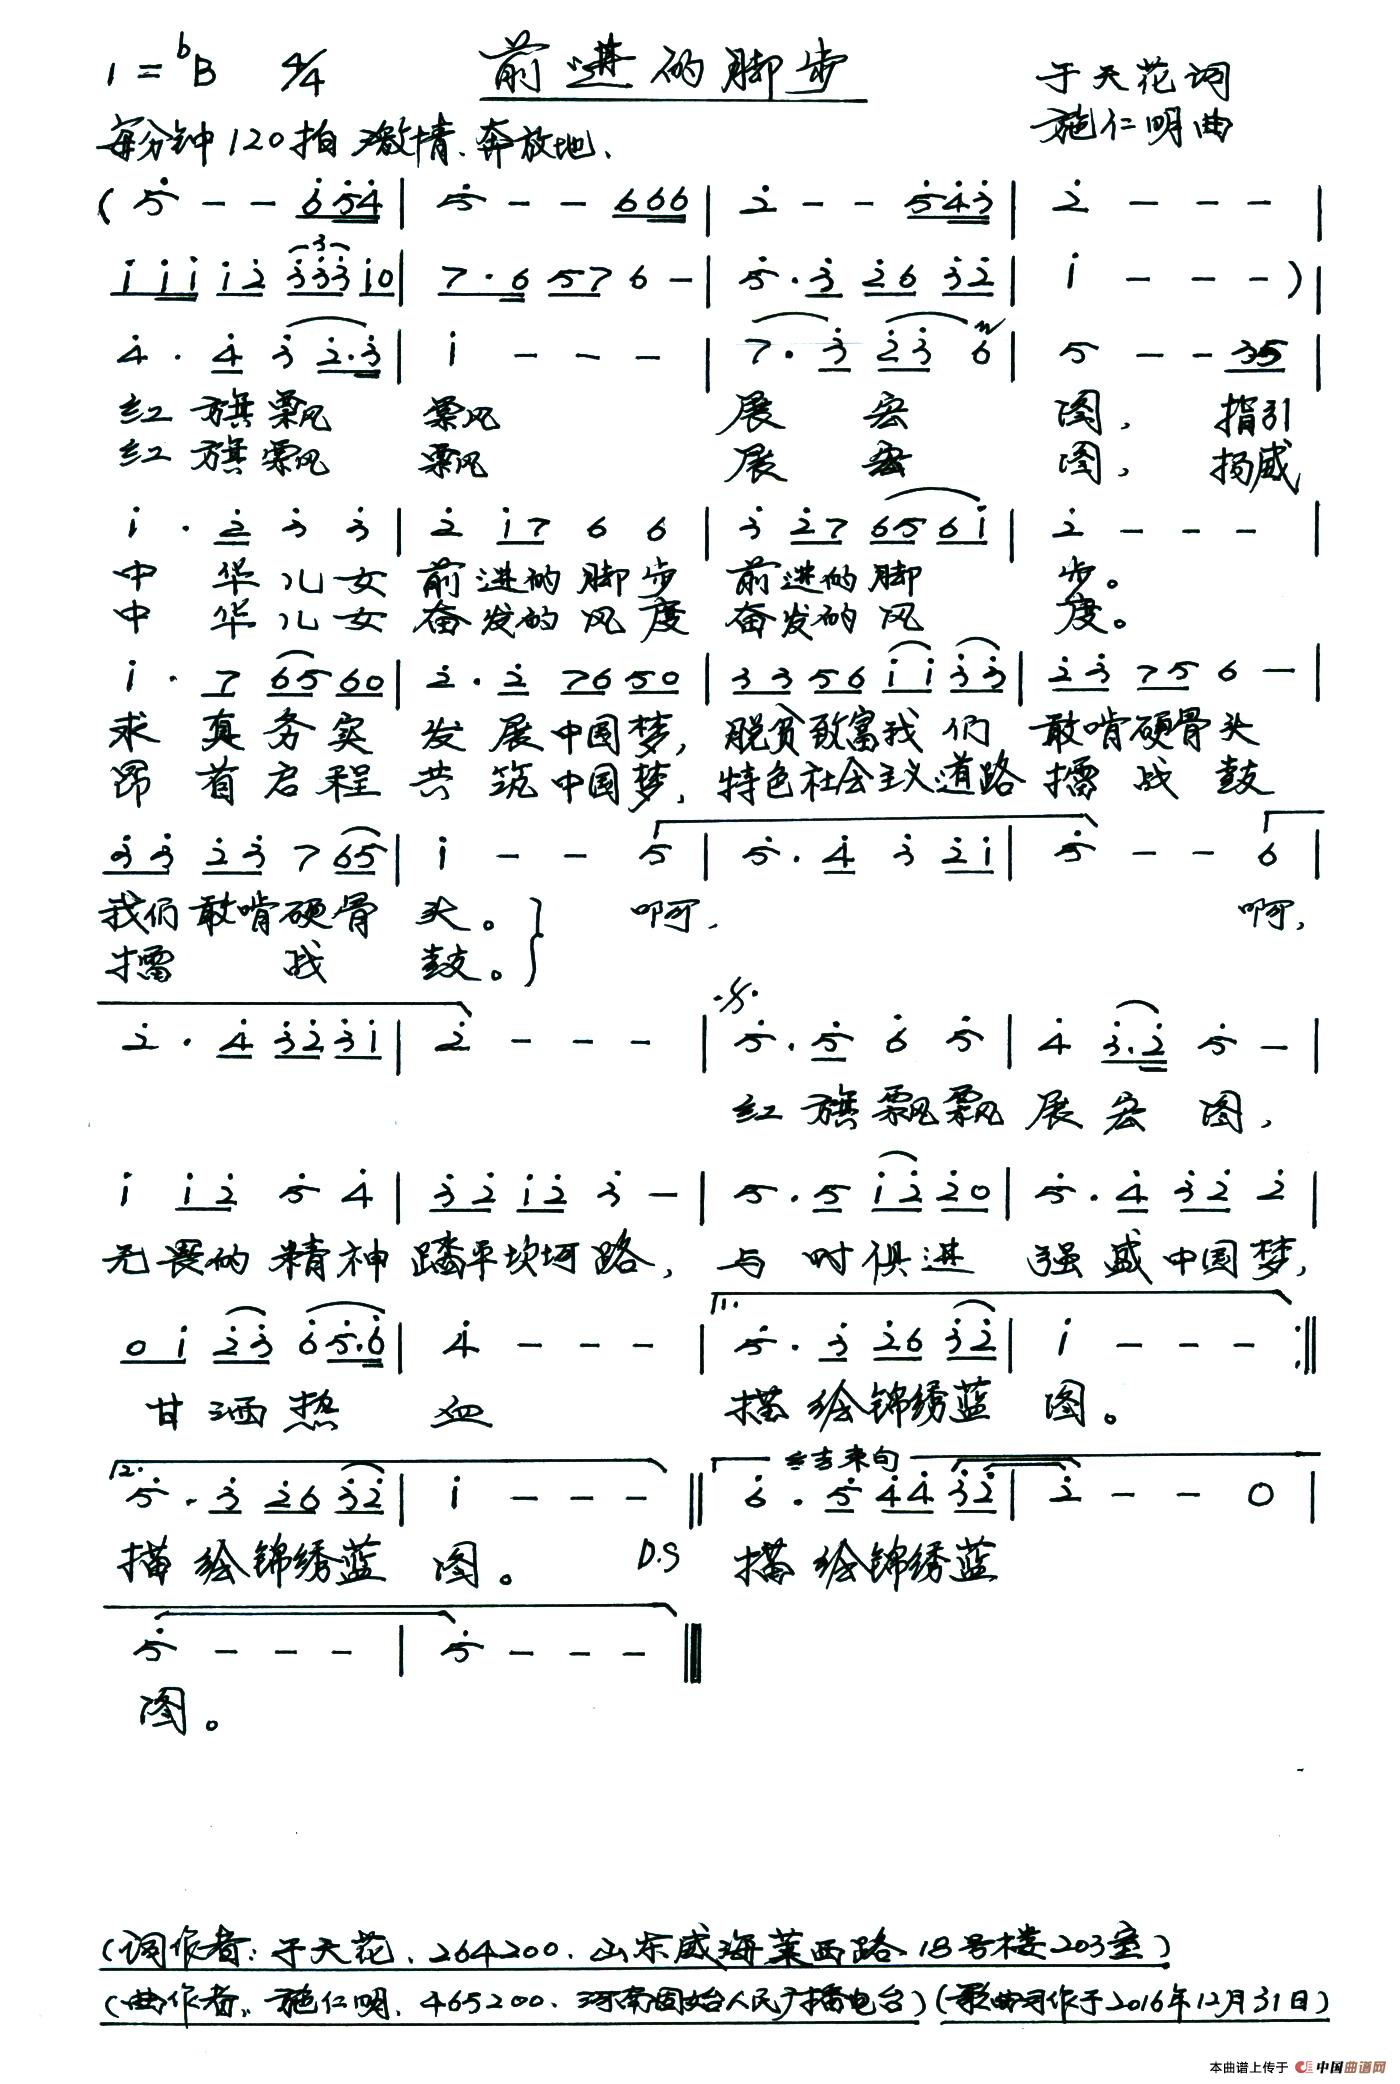 前进的脚步
1=♭B 4/4
于天花词
施仁明曲
每分钟120拍 激情、奔放地、
(5̇ - - 6̇5̇4̇ | 5̇ - - 666 | 2̇ - - 5̇4̇3̇ | 2̇ - - - |
1̇1̇1̇ 1̇2̇ 3̇3̇3̇ 1̇0 | 7·6 57 6 - | 5̇·3̇ 2̇6 3̇2̇ | 1̇ - - - ) |
4̇·4̇ 3̇ 2̇·3̇ | 1̇ - - - | 7·3̇ 2̇3̇ 6 | 5 - - 35 |
红旗飘飘 展宏图,指引
红旗飘飘 展宏图,扬威
1̇·2̇ 3̇ 3̇ | 2̇ 1̇7 6 6 | 3̇ 2̇7 65 61̇ | 2̇ - - - |
中华儿女前进的脚步 前进的脚步。
中华儿女奋发的风度 奋发的风度。
1̇·7 65 60 | 2̇·2̇ 76 50 | 33 56 1̇1̇ 3̇3̇ | 2̇3̇ 75 6 - |
求真务实 发展中国梦,脱贫致富我们 敢啃硬骨头
昂首启程 共筑中国梦,特色社会主义道路 擂战鼓
3̇3̇ 2̇3̇ 7 65 | 1̇ - - 5 | 5̇·4̇ 3̇ 2̇1̇ | 5̇ - - 6 |
我们敢啃硬骨头。 啊, 啊,
擂战鼓。
2̇·4̇ 3̇2̇3̇1̇ | 2̇ - - - | 5̇·5̇ 6̇ 5̇ | 4̇ 3̇·2̇ 5̇ - |
红旗飘飘 展宏图,
1̇ 1̇2̇ 5̇ 4̇ | 3̇2̇ 1̇2̇ 3̇ - | 5̇·5̇ 1̇2̇ 2̇0 | 5̇·4̇ 3̇2̇ 2̇ |
无畏的精神 踏平坎坷路,与时俱进 强盛中国梦,
0 1̇ 2̇3̇ 6̇5̇·6̇ | 4̇ - - - | 1. 5̇·3̇ 2̇6 3̇2̇ | 1̇ - - - :‖
甘洒热血 描绘锦绣蓝图。
2. 5̇·3̇ 2̇6 3̇2̇ | 1̇ - - - ‖ 结束句 6̇·5̇ 4̇4̇ 3̇2̇ | 2̇ - - 0 |
描绘锦绣蓝图。 D.S 描绘锦绣蓝
5̇ - - - | 5̇ - - - ‖
图。
(词作者:于天花、264200、山东威海莱西路、18号楼203室)
(曲作者:施仁明、465200、河南固始人民广播电台)(歌曲写作于2016年12月31日)
本曲谱上传于 中国曲谱网